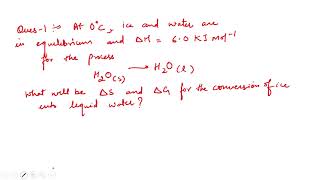 Ques-1 :- At 0°C, ice and water are
in equilibrium and ΔH = 6.0 KJ mol-1
for the process
H2O(s) → H2O(l)
What will be ΔS and ΔG for the conversion of ice
into liquid water?